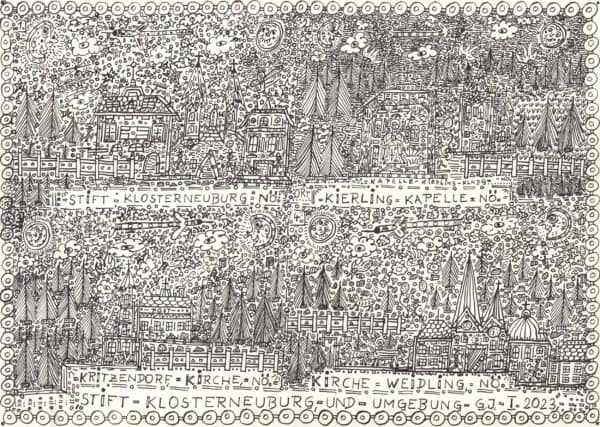 STIFT - KLOSTERNEUBURG = NÖ.
KIERLING = KAPELLE = NÖ.
KRITZENDORF = KIRCHE, = NÖ.
KIRCHE = WEIDLING = NÖ.
STIFT - KLOSTERNEUBURG, UND - UMGEBUNG - G.J. - I. - 2023.